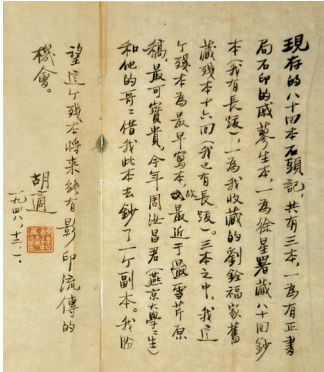 現存的八十回本石頭記,共有三本,一為有正書
局石印的戚蓼生本,一為徐星署藏八十回鈔
本(我有長跋),一為我收藏的劉銓福家舊
藏殘本十六回(我也有長跋)。三本之中,我這
个殘本為最早寫本,故最近于雪芹原
稿,最可寶貴。今年周汝昌君(燕京大學學生)
和他的哥哥借我此本去鈔了一个副本。我盼
望這个殘本將來能有影印流傳的
機會。
胡適
一九四八,十二,一